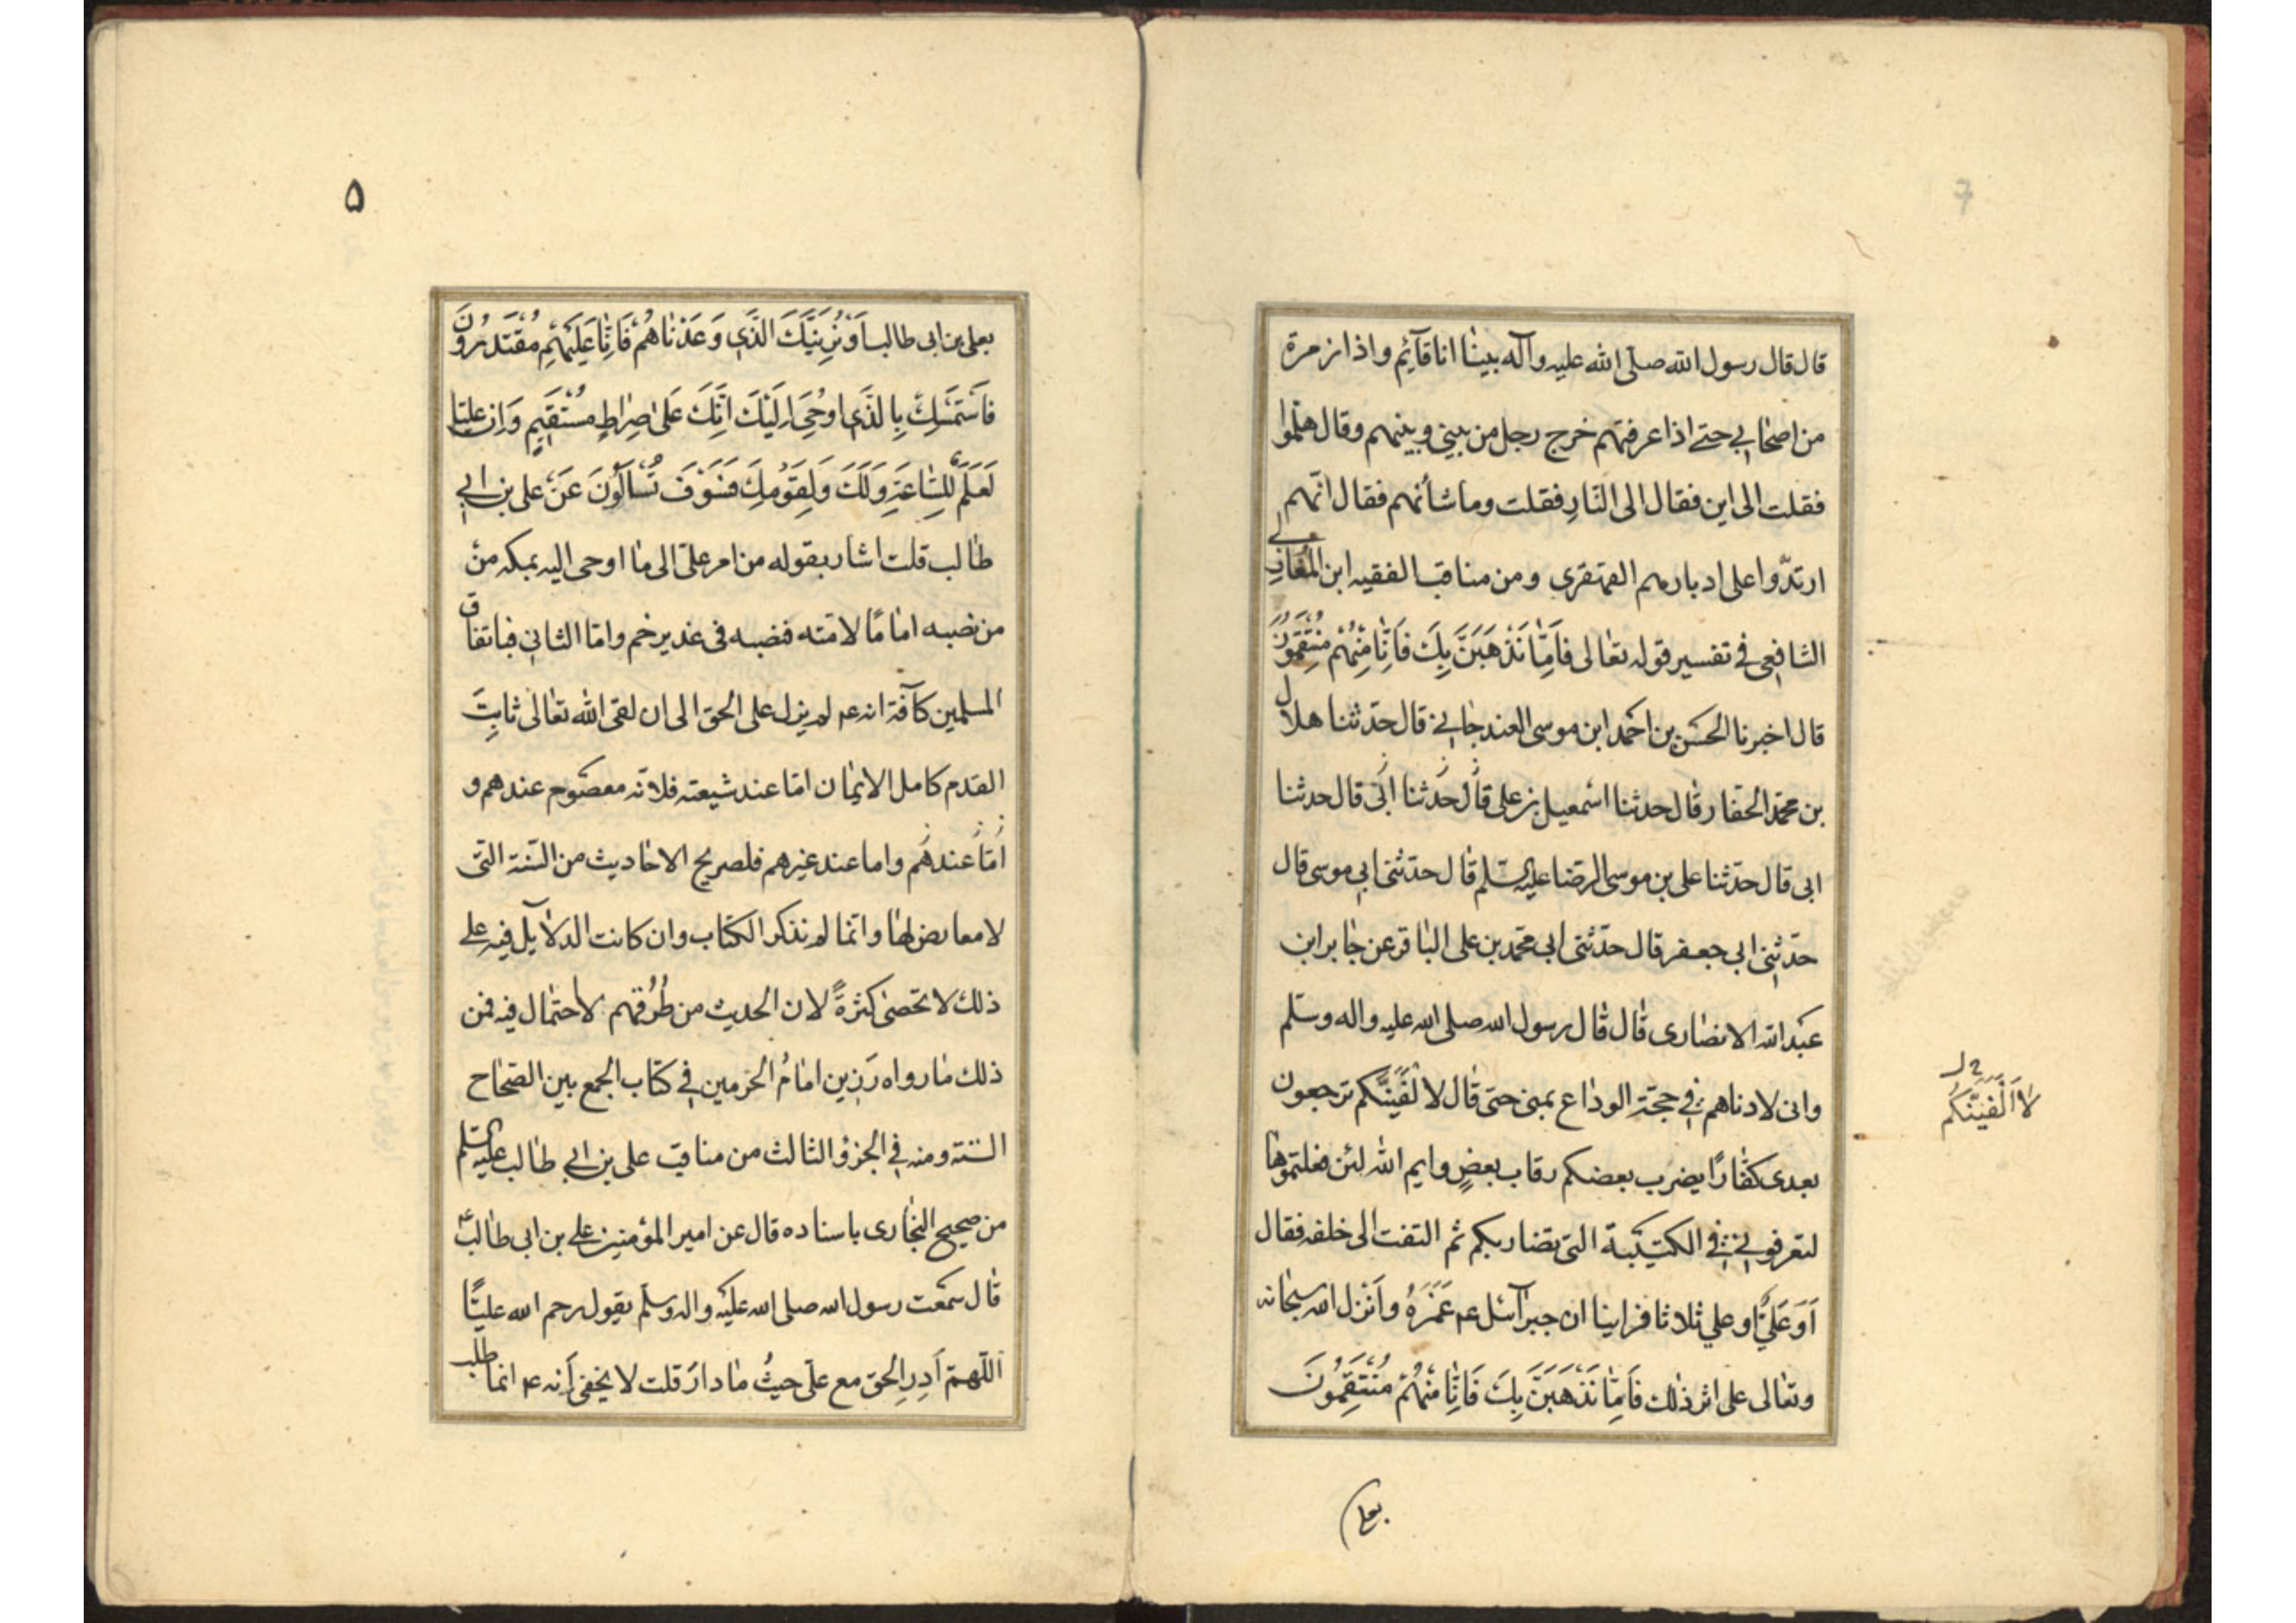 7
قال قال رسول الله صلّى الله عليه وآله بينا انا قآئِم واذا زمرة
من اصحابي حتے اذا عرفتهم خرج رجل من بيني وبينهم وقال هلمّوا
فقلت الى اين فقال الى النّارِ فقلت وما شأنهم فقال انّهم
ارتدّوا على ادبارهم القهقرى ومن مناقب الفقيه ابن المُغازِلي
الشافعي في تفسير قوله تعالى فَاِمَّا نَذْهَبَنَّ بِكَ فَاِنَّا مِنْهُمْ مُنْتَقِمُونَ
قال اخبرنا الحَسَن بن احمد ابن موسى العندجاني قال حدّثنا هلال
بن محمّد الحفّار قال حدثنا اسمعيل بن على قال حَدثنا اَبَى قال حدثنا
ابى قال حدّثنا على بن موسى الرضا عليه السّلم قال حدثنى ابي موسى قال
حدّثنى ابى جعفر قال حدّثنى ابى محمّد بن على الباقر عن جابر ابن
عَبد الله الانصارى قال قال رسول الله صلى الله عليه واله وسلّم
وانى لادناهم في حجّة الوداع بمنى حتى قال لا لْفَيَنَّكم ترجعون
لا اُلْفَيَنَّكُم
بعدى كفّارًا يضرب بعضكم رقاب بعضٍ وايم الله لئن فعلتموها
لتعرفوني في الكتيبة التى تضاربكم ثم التفت الى خلفه فقال
اَوَعَلِيًّا وعلي ثلاثا فراينا ان جبرآئل ع غَمَزَهُ وأنزل الله سبحانه
وتعالى على اثر ذلك فَاِمَّا نَذْهَبَنَّ بِكَ فَاِنَّا مِنْهُمْ مُنْتَقِمُونَ
بعلى
۵
بعلى بن ابى طالب اَوْ نُرِيَنَّكَ الَّذَي وَعَدْنَاهُمْ فَاِنَّا عَلَيْهِمْ مُقْتَدِرُونَ
فَاسْتَمْسِكْ بِالَّذَي اوحُيَ اِلَيْكَ اِنَّكَ عَلى صِرَاطٍ مُسْتَقِيمٍ وَاِن عليّا
لَعَلَمٌ لِلسَّاعَةِ وَلَكَ وَلِقَوْمِكَ فَسَوْفَ تُسْأَلُونَ عَنْ على بن ابي
طالب قلت اشار بقوله من امر علىّ الى ما اوحى اليه بمكه منْ
من نصبه امامًا لامّته فنصبه فى غدير خم وامّا الثاني فباتفاق
المسلمين كآفة انه ع لم يزل على الحق الى ان لقى الله تعالى ثابتَ
القدم كامل الايمان امّا عند شيعته فلانّه معصوم عندهم و
امّا عندهُم واما عند غيرهم فلصريح الاحاديث من السّنة التّى
لا معارض لها وانّما لم نذكر الكتاب وان كانت الدلآيل فيه على
ذلك لا تحصى كثرةً لان الحديث من طُرُقهم لا احتمال فيه فمن
ذلك ما رواه رَزين امامُ الحَرمين في كتاب الجمع بين الصّحاح
السّتة ومنه في الجزؤ الثالث من مناقب على بن ابي طالب عليه السّلم
من صحيح البخارى باسناده قال عن امير المؤمنين على بن ابى طالب ع
قال سمعت رسول الله صلى الله عليه واله وسلّم يقول رحم الله عليًّا
اللّهمّ اَدِرِ الحق مع علىّ حيثُ ما دارَ قلت لا يخفى اَنه ع انما طلب